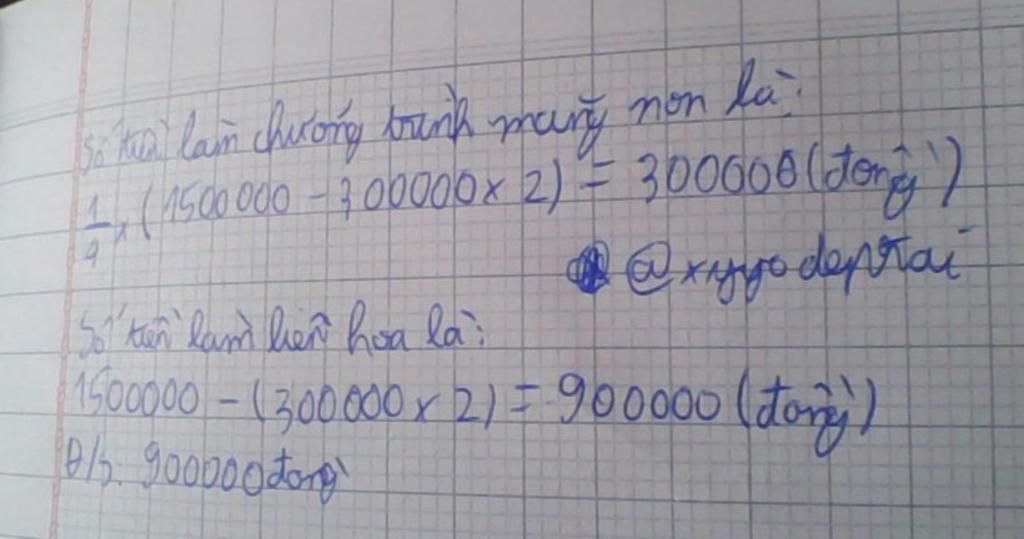 Số tiền làm chương trình măng non là:
1/9 x (1500000 - 300000 x 2) = 300000 (đồng)
@xyyodeptrai
Số tiền làm liên hoa là:
1500000 - (300000 x 2) = 900000 (đồng)
Đ/s: 900000 đồng